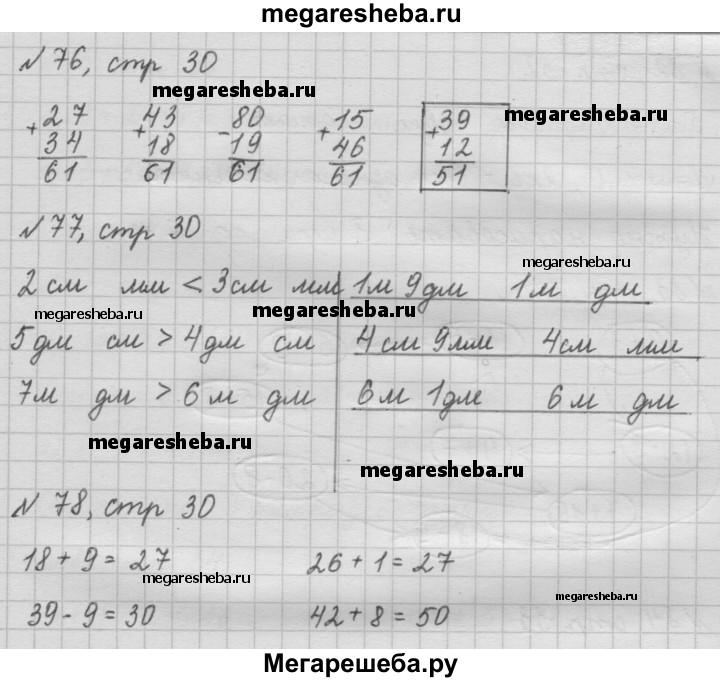 megaresheba.ru
№ 76, стр 30
megaresheba.ru
27 43 80 15 39
+ + - + +
34 18 19 46 12
61 61 61 61 51
megaresheba.ru
№ 77, стр 30
megaresheba.ru
2 см мм < 3 см мм 1 м 9 дм 1 м дм
megaresheba.ru megaresheba.ru
5 дм см > 4 дм см 4 см 9 мм 4 см мм
7 м дм > 6 м дм 6 м 1 дм 6 м дм
megaresheba.ru
megaresheba.ru
№ 78, стр 30
18 + 9 = 27 26 + 1 = 27
megaresheba.ru
megaresheba.ru
39 - 9 = 30 42 + 8 = 50
Мегарешеба.ру